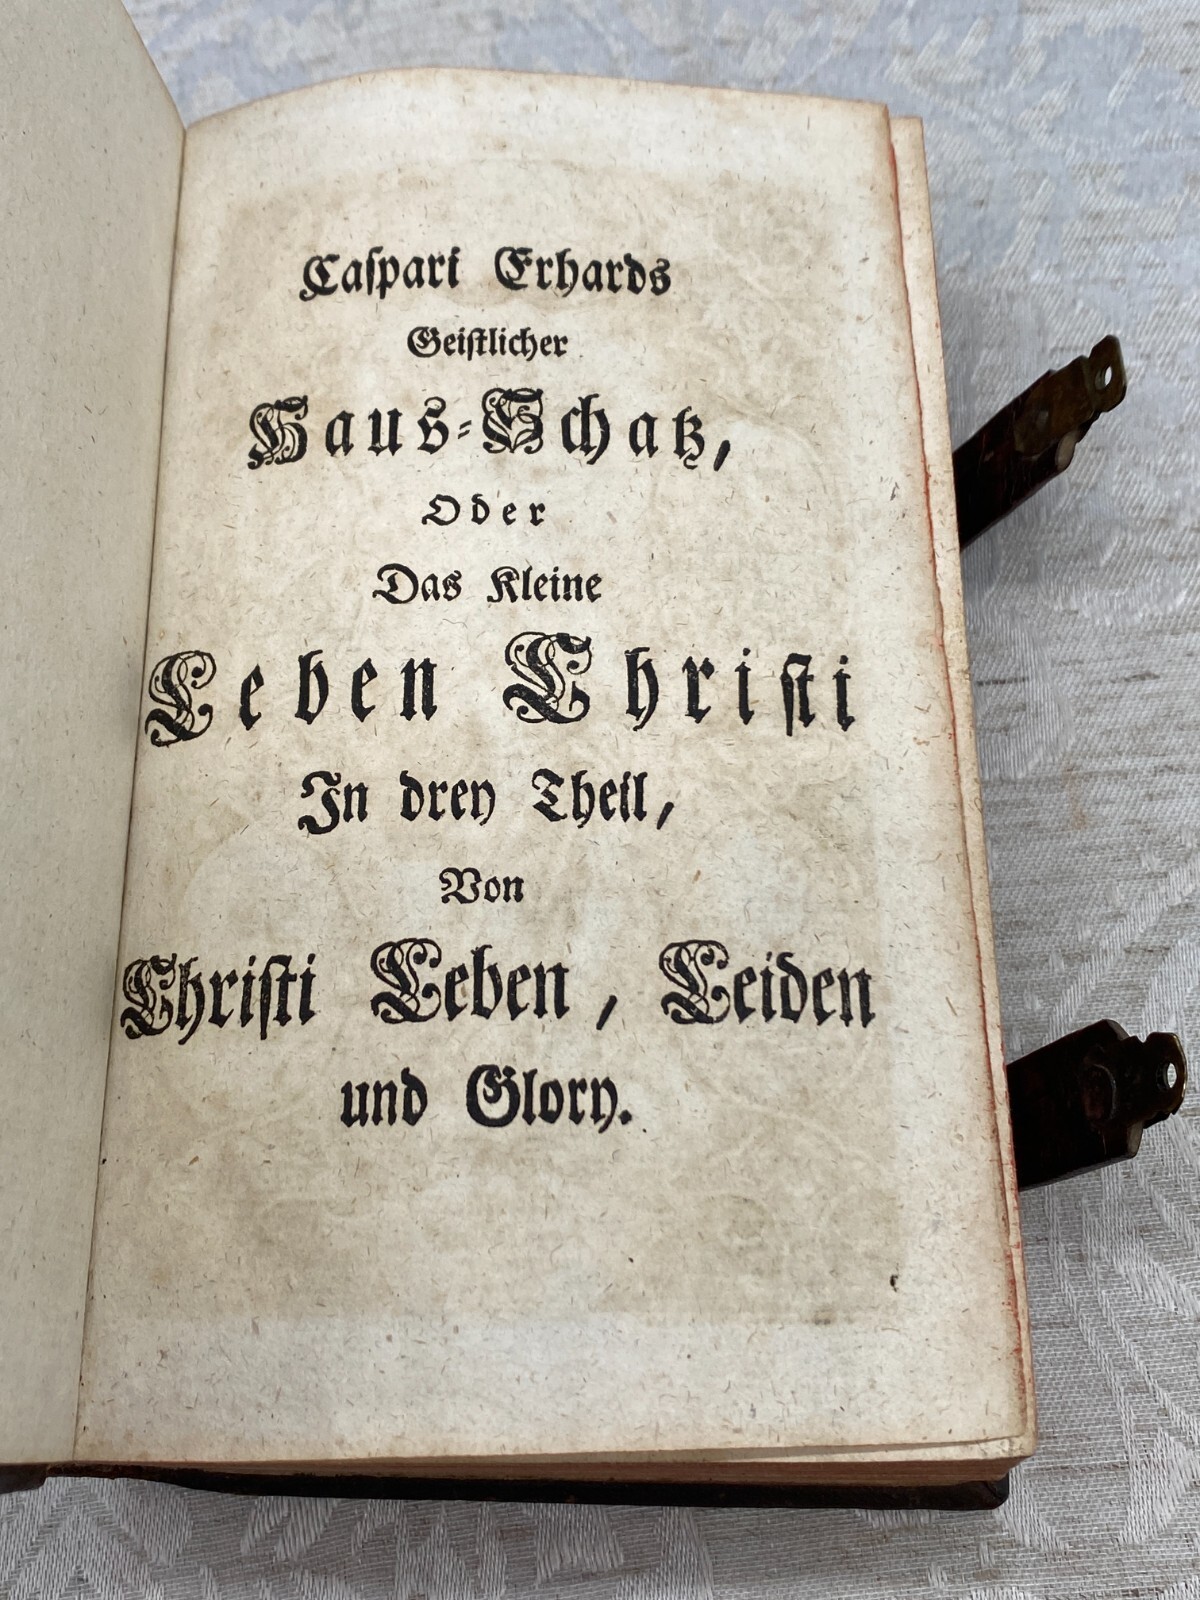 Caſpari Erhards
Geiſtlicher
Haus-Schatz,
Oder
Das Kleine
Leben Chriſti
In drey Theil,
Von
Chriſti Leben, Leiden
und Glory.